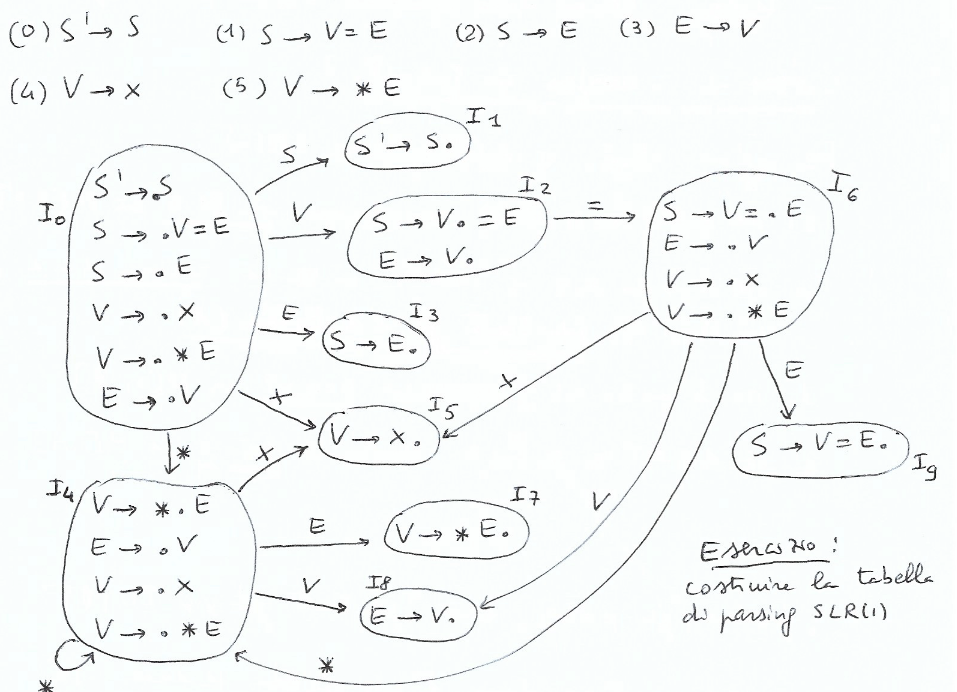 (0) S' → S (1) S → V = E (2) S → E (3) E → V
(4) V → x (5) V → * E
I0
S' → .S
S → .V=E
S → . E
V → . x
V → . * E
E → . V
S
S' → S.
I1
V
I2
S → V. = E
E → V.
=
I6
S → V = . E
E → . V
V → . x
V → . * E
E
I3
S → E.
x
I5
V → x.
x
E
S → V = E.
I9
*
x
I4
V → * . E
E → . V
V → . x
V → . * E
*
E
I7
V → * E.
V
I8
E → V.
V
*
Esercizio :
costruire la tabella
di parsing SLR(1)